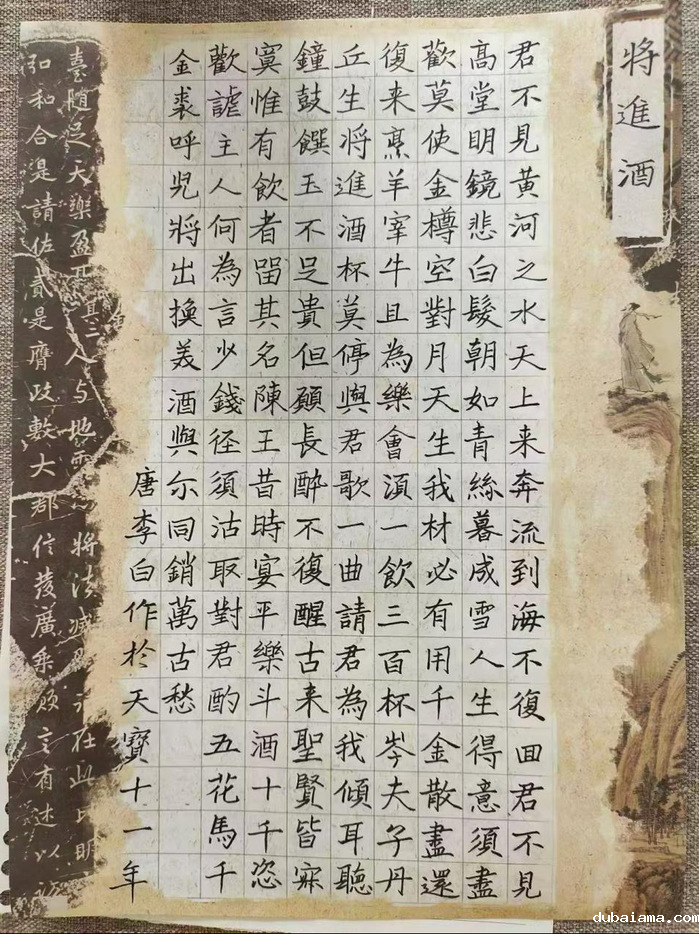 將進酒
君不見黃河之水天上来奔流到海不復回君不見
高堂明鏡悲白髮朝如青絲暮成雪人生得意須盡
歡莫使金樽空對月天生我材必有用千金散盡還
復来烹羊宰牛且為樂會須一飲三百杯岑夫子丹
丘生將進酒杯莫停與君歌一曲請君為我傾耳聽
鐘鼓饌玉不足貴但願長醉不復醒古来聖賢皆寂
寞惟有飲者留其名陳王昔時宴平樂斗酒十千恣
歡謔主人何為言少錢径須沽取對君酌五花馬千
金裘呼児將出換美酒與尔同銷萬古愁
唐李白作於天寶十一年
和合是請佐貳是膺政敷大郡
dubaiama.com